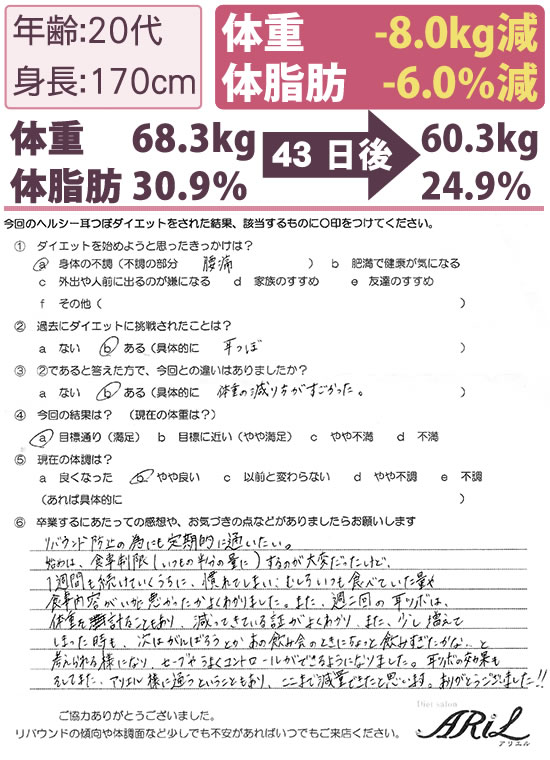 年齢:20代
身長:170cm
体重 -8.0kg減
体脂肪 -6.0%減
体重 68.3kg 43 日後 60.3kg
体脂肪 30.9% 24.9%
今回のヘルシー耳つぼダイエットをされた結果、該当するものに〇印をつけてください。
① ダイエットを始めようと思ったきっかけは?
a 身体の不調(不調の部分 腰痛 ) b 肥満で健康が気になる
c 外出や人前に出るのが嫌になる d 家族のすすめ e 友達のすすめ
f その他( )
② 過去にダイエットに挑戦されたことは?
a ない b ある(具体的に 耳つぼ )
③ ②であると答えた方で、今回との違いはありましたか?
a ない b ある(具体的に 体重の減り方がすごかった。 )
④ 今回の結果は? (現在の体重は?)
a 目標通り(満足) b 目標に近い(やや満足) c やや不満 d 不満
⑤ 現在の体調は?
a 良くなった b やや良い c 以前と変わらない d やや不調 e 不調
(あれば具体的に )
⑥ 卒業するにあたっての感想や、お気づきの点などがありましたらお願いします
リバウンド防止の為にも定期的に通いたい。
始めは、食事制限(いつもの半分の量に)するのが大変だったけど、
1週間も続けていくうちに、慣れてしまい、むしろいつも食べていた量や
食事内容がいかに悪かったかよくわかりました。また、週二回の耳ツボは、
体重を計ることもあり、減ってきている証がよくわかり、また、少し増えて
しまった時も、次はがんばろうとかあの飲み会のときにちょっと飲みすぎたかな、と
考えられる様になり、セーブやうまくコントロールができるようになりました。耳ツボの効果も
そしてまた、アリエル様に通うということもあり、ここまで減量できたと思います。ありがとうございました!!
ご協力ありがとうございました。
リバウンドの傾向や体調面など少しでも不安があればいつでもご来店ください。
Diet salon
ARiL
アリエル